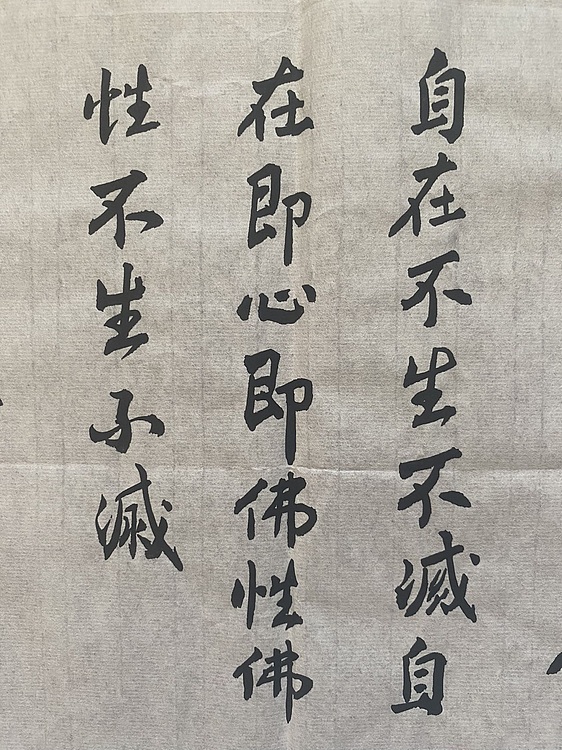 自在不生不滅自
在即心即佛性佛
性不生不滅